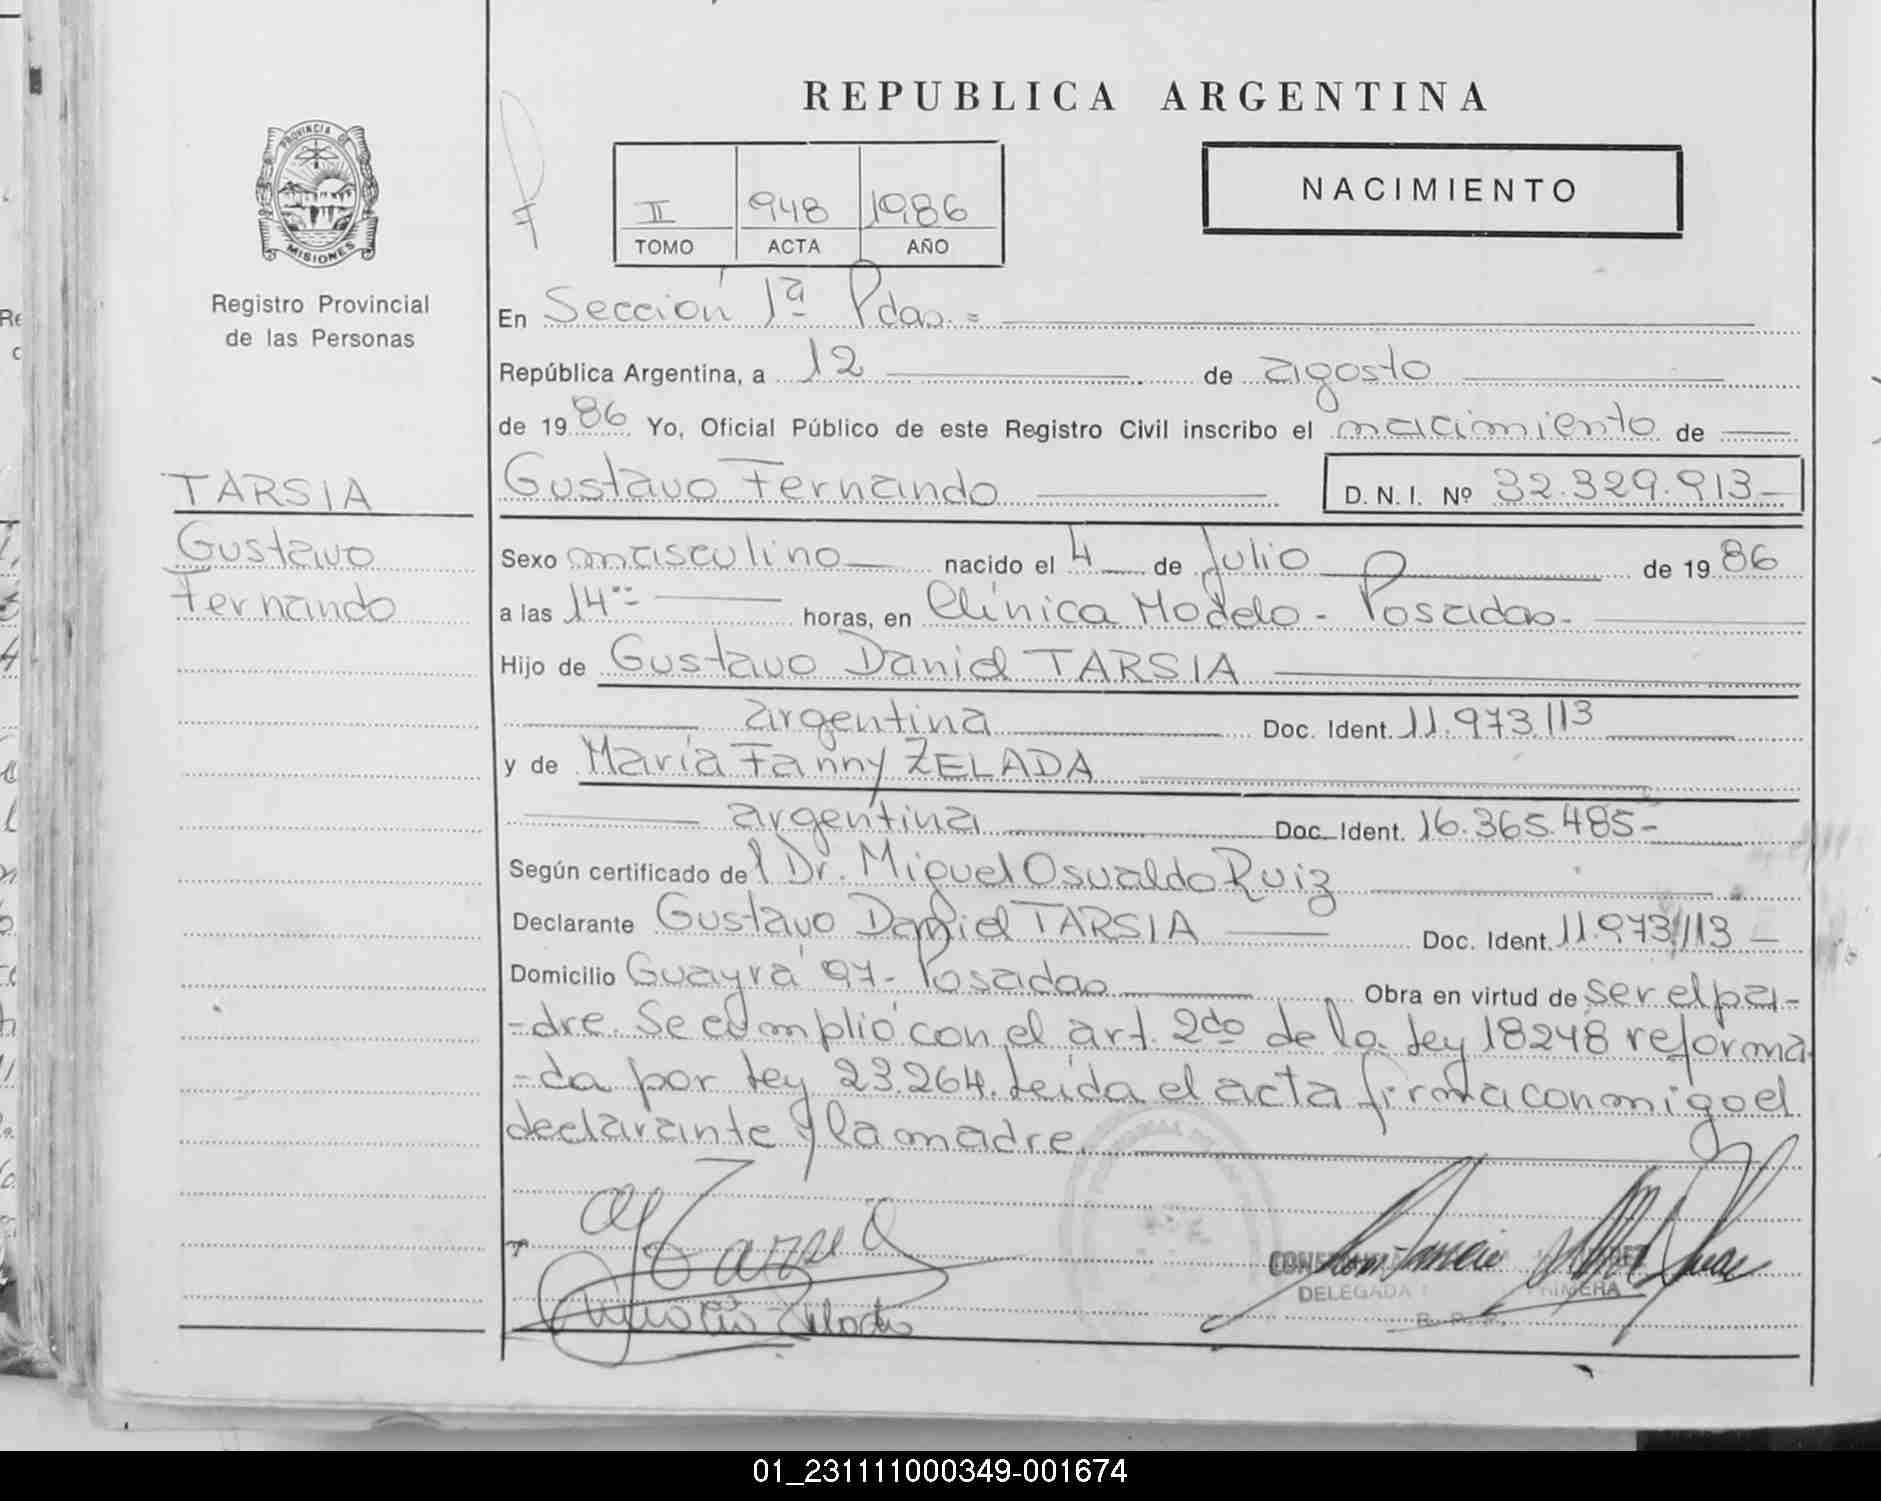 REPUBLICA ARGENTINA
PROVINCIA DE
MISIONES
Registro Provincial
de las Personas
II 948 1986
TOMO ACTA AÑO
NACIMIENTO
En Sección 1ª Pdas.=
República Argentina, a 12 de agosto
de 1986 Yo, Oficial Público de este Registro Civil inscribo el nacimiento de
TARSIA
Gustavo
Fernando
Gustavo Fernando D.N.I. Nº 32.329.913-
Sexo masculino nacido el 4 de Julio de 1986
a las 14 horas, en Clínica Modelo - Posadas-
Hijo de Gustavo Daniel TARSIA
argentina Doc. Ident. 11.973.113
y de María Fanny ZELADA
argentina Doc. Ident. 16.365.485-
Según certificado del Dr. Miguel Osvaldo Ruiz
Declarante Gustavo Daniel TARSIA Doc. Ident. 11.973.113-
Domicilio Guayrá 97- Posadas Obra en virtud de ser el pa-
-dre. Se cumplió con el art. 2do de la Ley 18248 reforma
-da por Ley 23.264. Leída el acta firma conmigo el
declarante y la madre.
DELEGADA PRIMERA
01_231111000349-001674